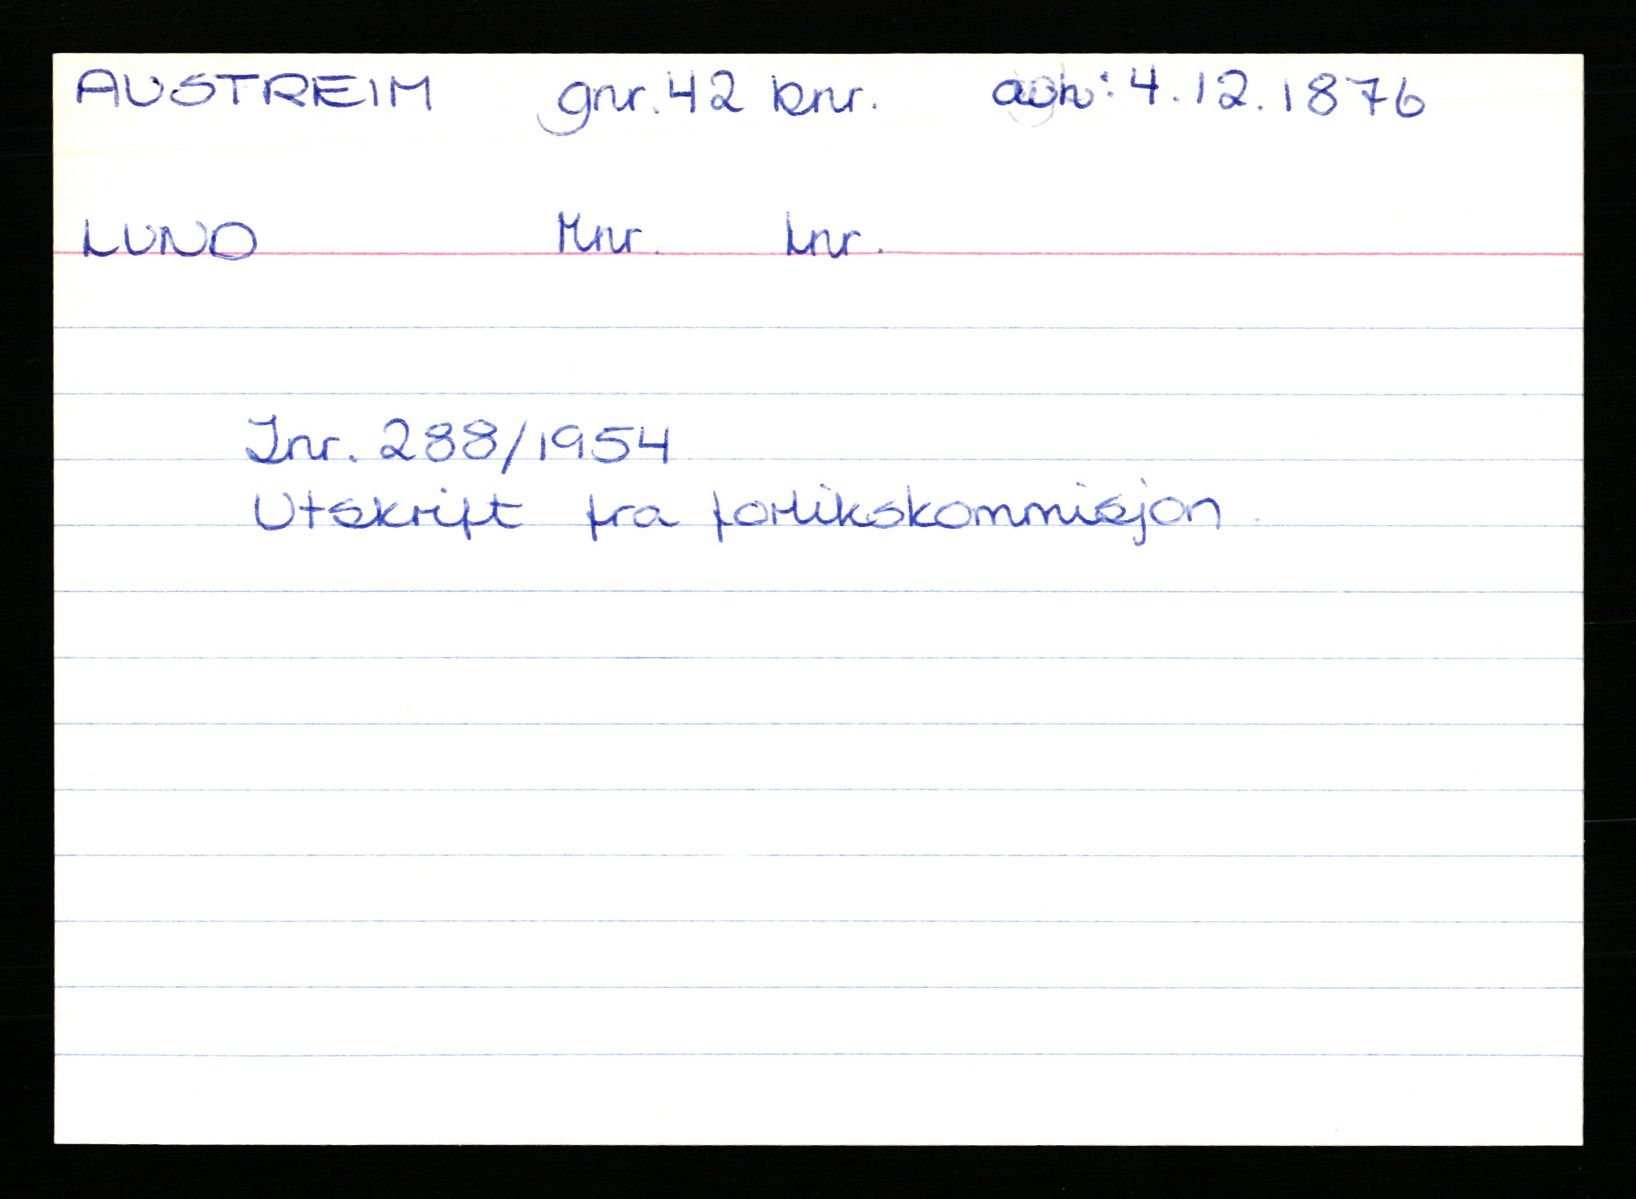 AUSTREIM gnr. 42 bnr. avh: 4.12.1876
LUND Mnr. Lnr.
Jnr. 288/1954
Utskrift fra forlikskommisjon.